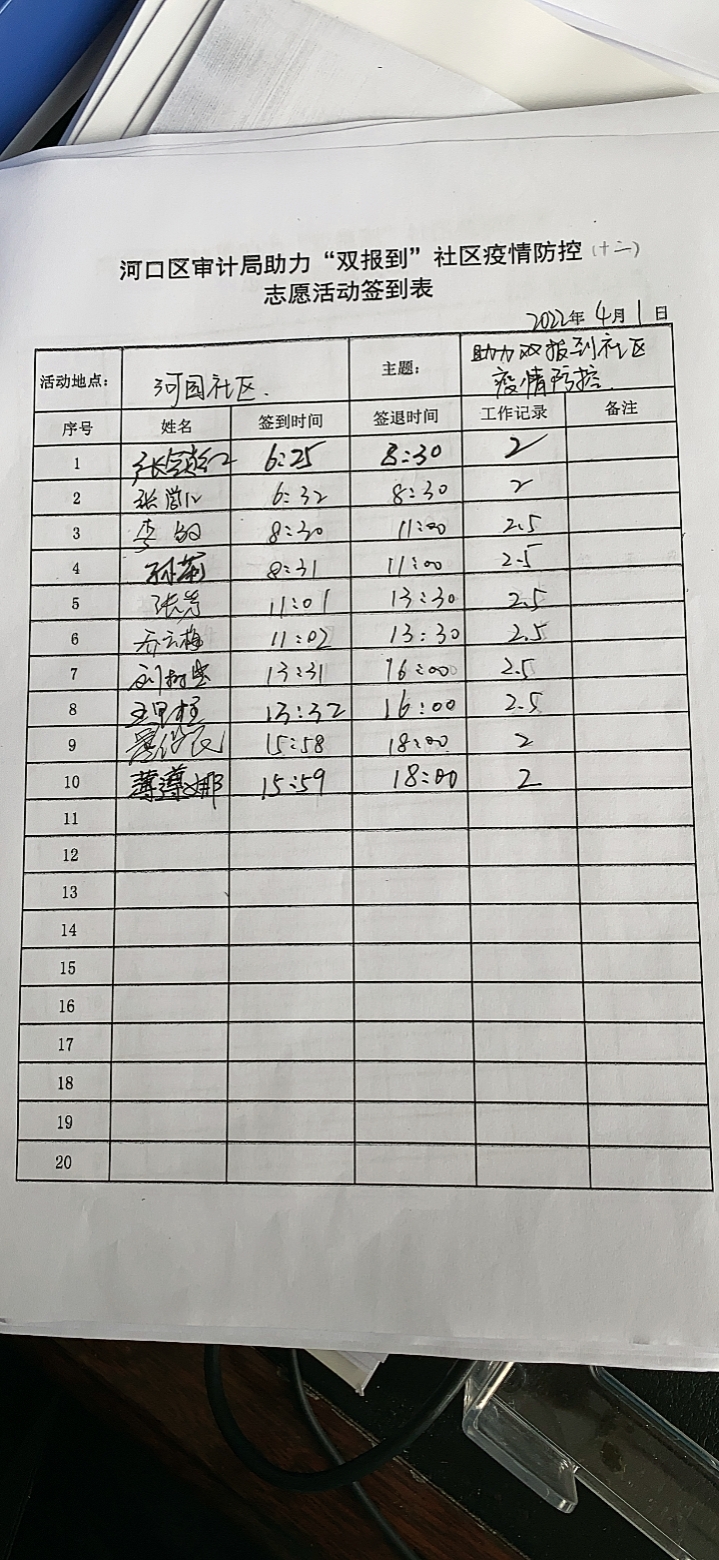 河口区审计局助力“双报到”社区疫情防控(十二)
志愿活动签到表
2022年 4月 1日
活动地点： 河园社区. 主题： 助力双报到社区疫情防控.
序号 姓名 签到时间 签退时间 工作记录 备注
1 6:25 8:30 2
2 6:32 8:30 2
3 李 8:30 11:00 2.5
4 孙菊 8:31 11:00 2.5
5 张芳 11:01 13:30 2.5
6 乔云梅 11:02 13:30 2.5
7 刘树 13:31 16:00 2.5
8 13:32 16:00 2.5
9 15:58 18:00 2
10 薄遵娜 15:59 18:00 2
11
12
13
14
15
16
17
18
19
20